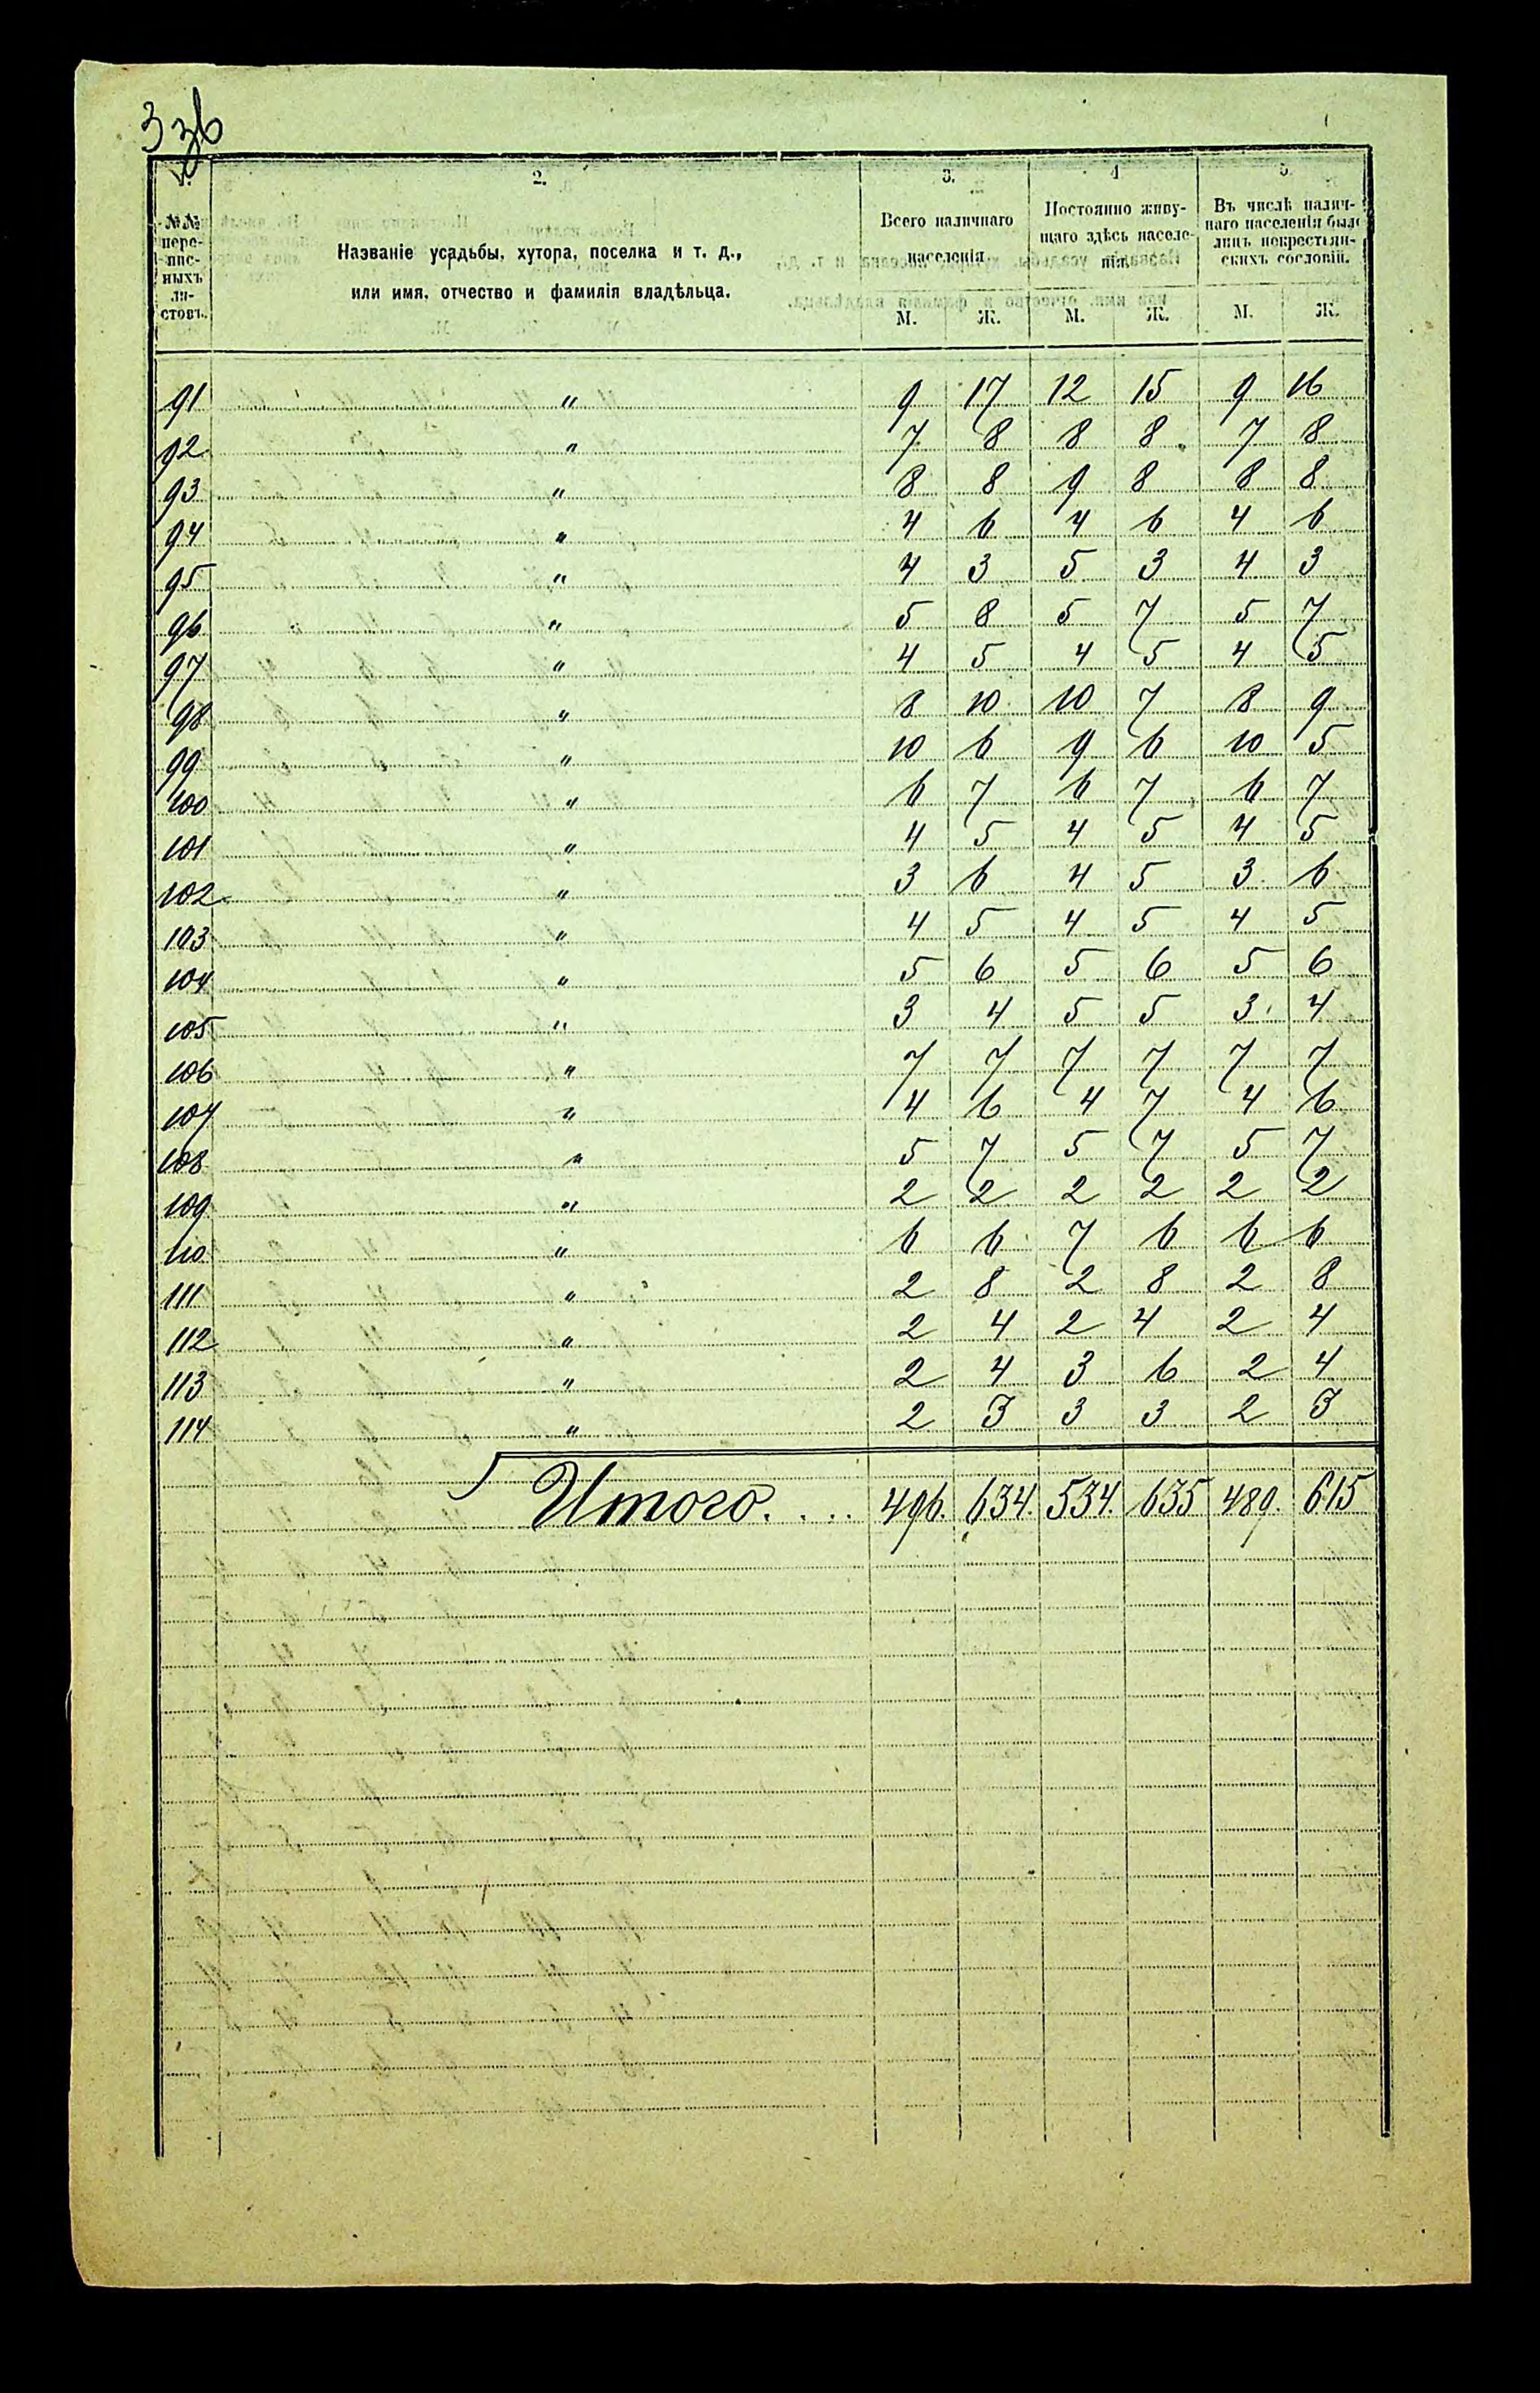 3 зв
2. 3. 4 5.
№№ пере- пис- ныхъ ли- стовъ.
Названіе усадьбы, хутора, поселка и т. д.,
или имя, отчество и фамилія владѣльца.
Всего наличнаго
населенія
Постоянно живу-
щаго здѣсь населе-
нія.
Въ числѣ налич-
наго населенія было
лицъ некрестьян-
скихъ сословій.
М. Ж. М. Ж. М. Ж.
91 " 9 17 12 15 9 16
92 " 7 8 8 8 7 8
93 " 8 8 9 8 8 8
94 " 4 6 4 6 4 6
95 " 4 3 5 3 4 3
96 " 5 8 5 7 5 7
97 " 4 5 4 5 4 5
98 " 8 10 10 7 8 9
99 " 10 6 9 6 10 5
100 " 6 7 6 7 6 7
101 " 4 5 4 5 4 5
102 " 3 6 4 5 3 6
103 " 4 5 4 5 4 5
104 " 5 6 5 6 5 6
105 " 3 4 5 5 3 4
106 " 7 7 7 7 7 7
107 " 4 6 4 7 4 6
108 " 5 7 5 7 5 7
109 " 2 2 2 2 2 2
110 " 6 6 7 6 6 6
111 " 2 8 2 8 2 8
112 " 2 4 2 4 2 4
113 " 2 4 3 6 2 4
114 " 2 3 3 3 2 3
Итого.... 496. 634. 534. 635 489. 615